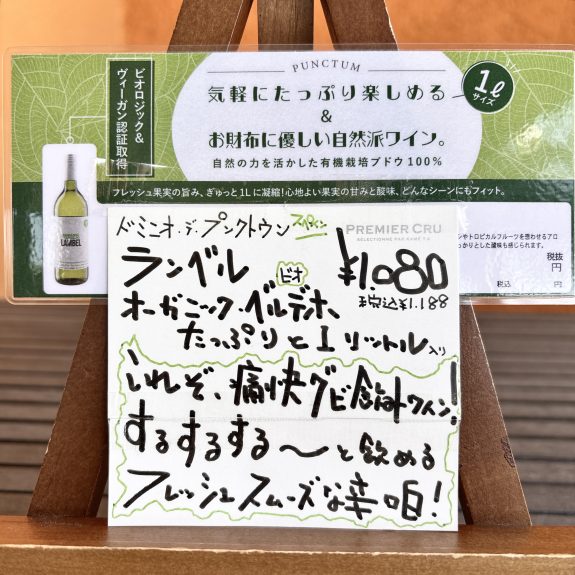 PUNCTUM
気軽にたっぷり楽しめる
&
お財布に優しい自然派ワイン。
自然の力を活かした有機栽培ブドウ100%
1ℓ
サイズ
ビオロジック&
ヴィーガン認証取得
フレッシュ果実の旨み、ぎゅっと1Lに凝縮!心地よい果実の甘みと酸味、どんなシーンにもフィット。
LAMBEL
トロピカルフルーツを想わせるアロ
っかりとした酸味も感じられます。
税抜
円
税込
円
ドミニオ・デ・プンクトゥン
スペイン
PREMIER CRU
ランベル
ビオ
¥1.080
税込¥1.188
オーガニック・ベルデホ
たっぷりと1リットル入り
これぞ、痛快グビ飲みワイン!
するするする〜と飲める
フレッシュスムーズな辛口!